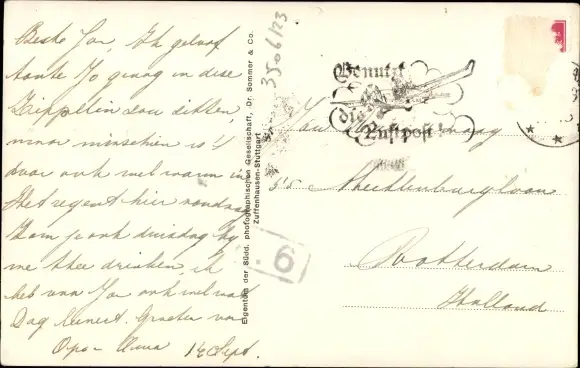 Beste Jan, Ik geloof
tante Jo graag in deze
Zippelin zou zitten,
maar misschien is 't
daar ook wel warm in
Het regent hier vandaag
Kom je ook dinsdag bij
me thee drinken, ik
heb van Jan ook wel wat
Dag Groeten van
Opa - 14 Sept.
Eigentum der Südd. photographischen Gesellschaft, Dr. Sommer & Co.
Zuffenhausen-Stuttgart
350b/13
Benutzt
die
Luftpost
Mecklenburglaan
Rotterdam
Holland
6